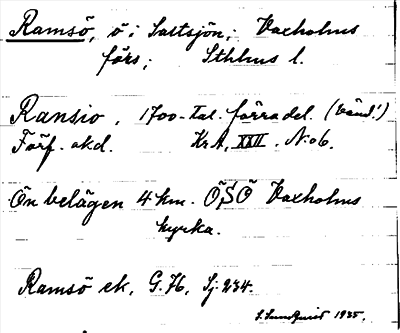 Ramsö, ö i Saltsjön; Vaxholms
förs; Sthlms l.
Ransio, 1700-tal. förra del. (vänd!)
Förf. okd. Kr.A. XXII. N:o 6.
Ön belägen 4 km. ÖSÖ Vaxholms
kyrka.
Ramsö ek. G. 76, Sj: 234.
Lundquist 1935.